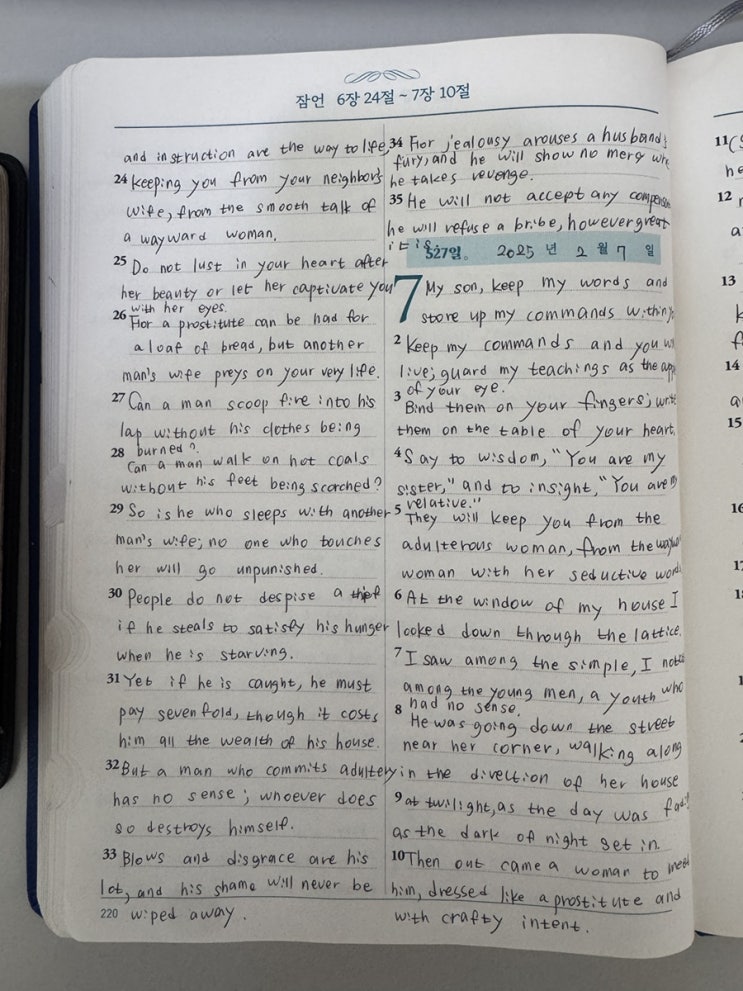 잠언 6장 24절 ~ 7장 10절
and instruction are the way to life,
24 keeping you from your neighbor's
wife, from the smooth talk of
a wayward woman.
25 Do not lust in your heart after
her beauty or let her captivate you
with her eyes.
26 For a prostitute can be had for
a loaf of bread, but another
man's wife preys on your very life.
27 Can a man scoop fire into his
lap without his clothes being
burned?
28 Can a man walk on hot coals
without his feet being scorched?
29 So is he who sleeps with another
man's wife; no one who touches
her will go unpunished.
30 People do not despise a thief
if he steals to satisfy his hunger
when he is starving.
31 Yet if he is caught, he must
pay sevenfold, though it costs
him all the wealth of his house.
32 But a man who commits adultery
has no sense; whoever does
so destroys himself.
33 Blows and disgrace are his
lot, and his shame will never be
wiped away.
220
34 For jealousy arouses a husband's
fury, and he will show no mercy
he takes revenge.
35 He will not accept any
he will refuse a bribe, however great
it is.
527일。 2025 년 2 월 7 일
7 My son, keep my words and
store up my commands within
2 Keep my commands and you
live; guard my teachings as the
of your eye.
3 Bind them on your fingers; write
them on the table of your heart.
4 Say to wisdom, "You are my
sister," and to insight, "You are my
relative."
5 They will keep you from the
adulterous woman, from the
woman with her seductive
6 At the window of my house I
looked down through the lattice.
7 I saw among the simple, I
among the young men, a youth who
had no sense.
8 He was going down the street
near her corner, walking along
in the direction of her house
9 at twilight, as the day was
as the dark of night set in.
10 Then out came a woman to meet
him, dressed like a prostitute and
with crafty intent.
11
12
13
14
15
16
17